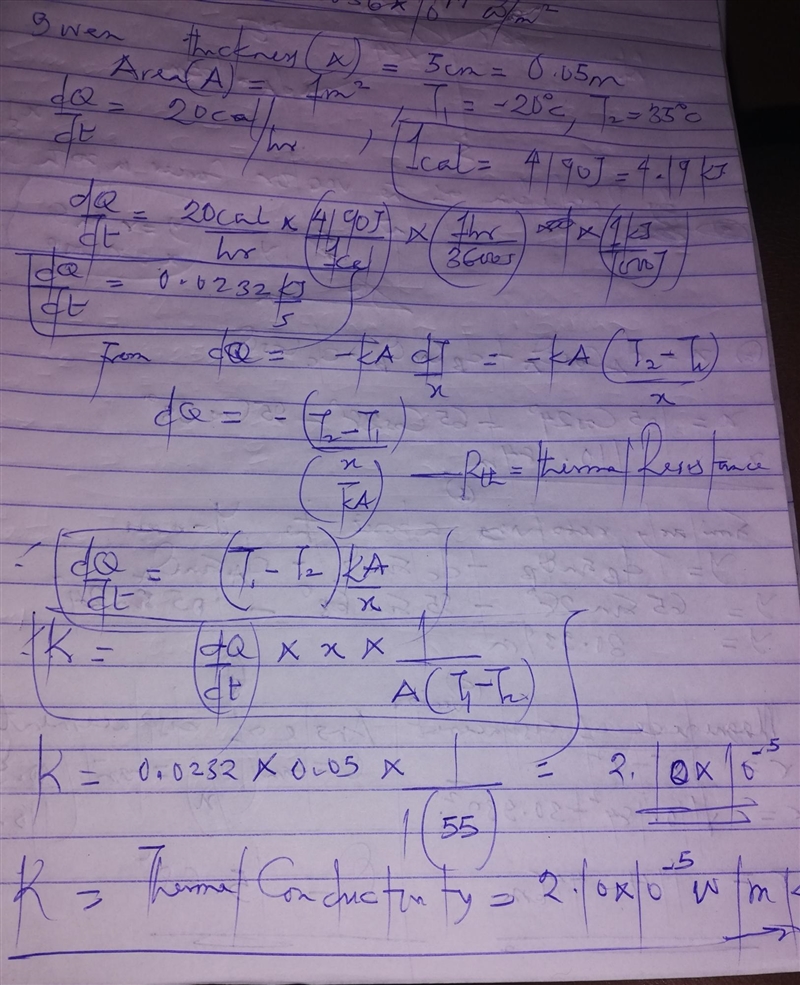 Given thickness(x) = 5cm = 0.05m
Area(A) = 1m²
dQ/dt = 20cal/hr , T₁ = -20°c, T₂ = 35°c
1cal = 4190J = 4.19kJ
dQ/dt = 20cal/hr × (4190J/1cal) × (1hr/3600s) × (1kJ/1000J)
dQ/dt = 0.0232 kJ/s
From dQ = -kA dT/x = -kA (T₂-T₁)/x
dQ = -(T₂-T₁)/(x/kA) — Rth = thermal Resistance
∴ dQ/dt = (T₁-T₂) kA/x
∴ K = (dQ/dt) × x × 1/A(T₁-T₂)
K = 0.0232 × 0.05 × 1/1(55) = 2.10×10⁻⁵
K = Thermal Conductivity = 2.10×10⁻⁵ W/m